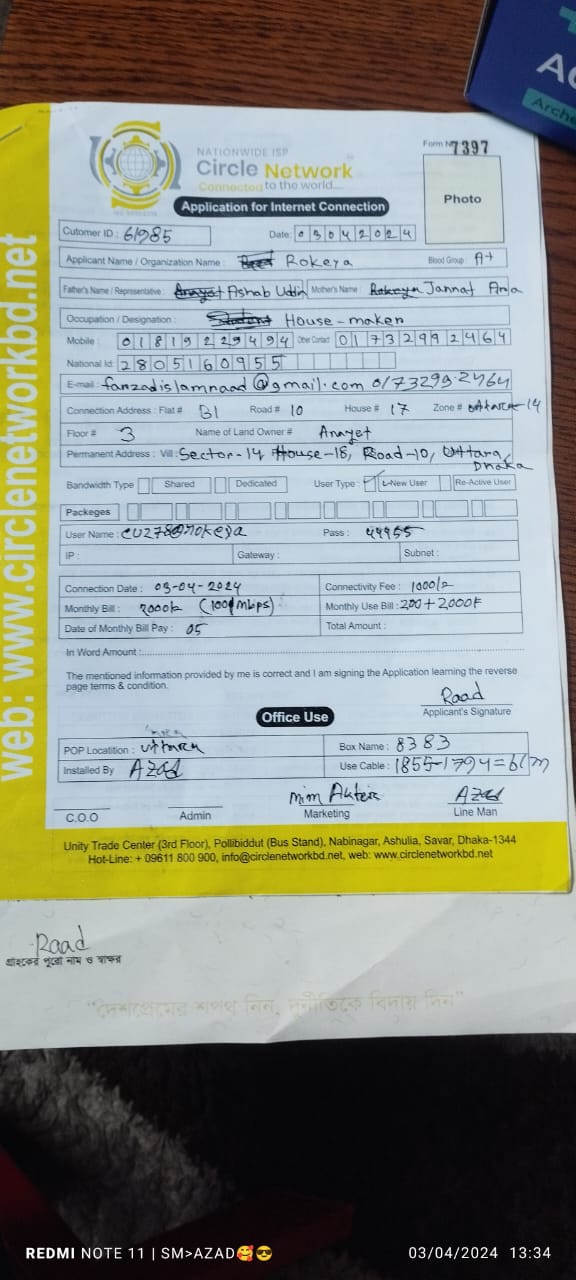 AC
Arche
web: www.circlenetworkbd.net
NATIONWIDE ISP
Circle Network
Connected to the world....
Form № 7397
Photo
Application for Internet Connection
Cutomer ID : 61985 Date: 03042024
Applicant Name / Organization Name : Rokeya Blood Group : A+
Father's Name / Representative : Ashab Uddin Mother's Name : Jannat Ara
Occupation / Designation : Student House-maker
Mobile : 01819229494 Other Contact 01732992464
National Id: 2805160955
E-mail : fanzadislamraad@gmail.com 0173299-2464
Connection Address : Flat # B1 Road # 10 House # 17 Zone # Uttara-14
Floor # 3 Name of Land Owner # Anayet
Permanent Address : Vill: Sector-14 House-18, Road-10, Uttara,
Dhaka
Bandwidth Type Shared Dedicated User Type : New User Re-Active User
Packeges
User Name : Pass : 44955
IP : Gateway : Subnet :
Connection Date : 03-04-2024 Connectivity Fee : 1000/=
Monthly Bill : Monthly Use Bill :
Date of Monthly Bill Pay : 05 Total Amount :
In Word Amount :
The mentioned information provided by me is correct and I am signing the Application learning the reverse
page terms & condition.
Raad
Applicant's Signature
Office Use
POP Locatition : Uttara Box Name : 8383
Installed By Azad Use Cable : 1855-1794=61m
Mim Akter Azad
C.O.O Admin Marketing Line Man
Unity Trade Center (3rd Floor), Pollibiddut (Bus Stand), Nabinagar, Ashulia, Savar, Dhaka-1344
Hot-Line: + 09611 800 900, info@circlenetworkbd.net, web: www.circlenetworkbd.net
Raad
গ্রাহকের পুরো নাম ও স্বাক্ষর
"দেশপ্রেমের শপথ নিন, দুর্নীতিকে বিদায় দিন"
REDMI NOTE 11 | SM>AZAD🥰😎 03/04/2024 13:34